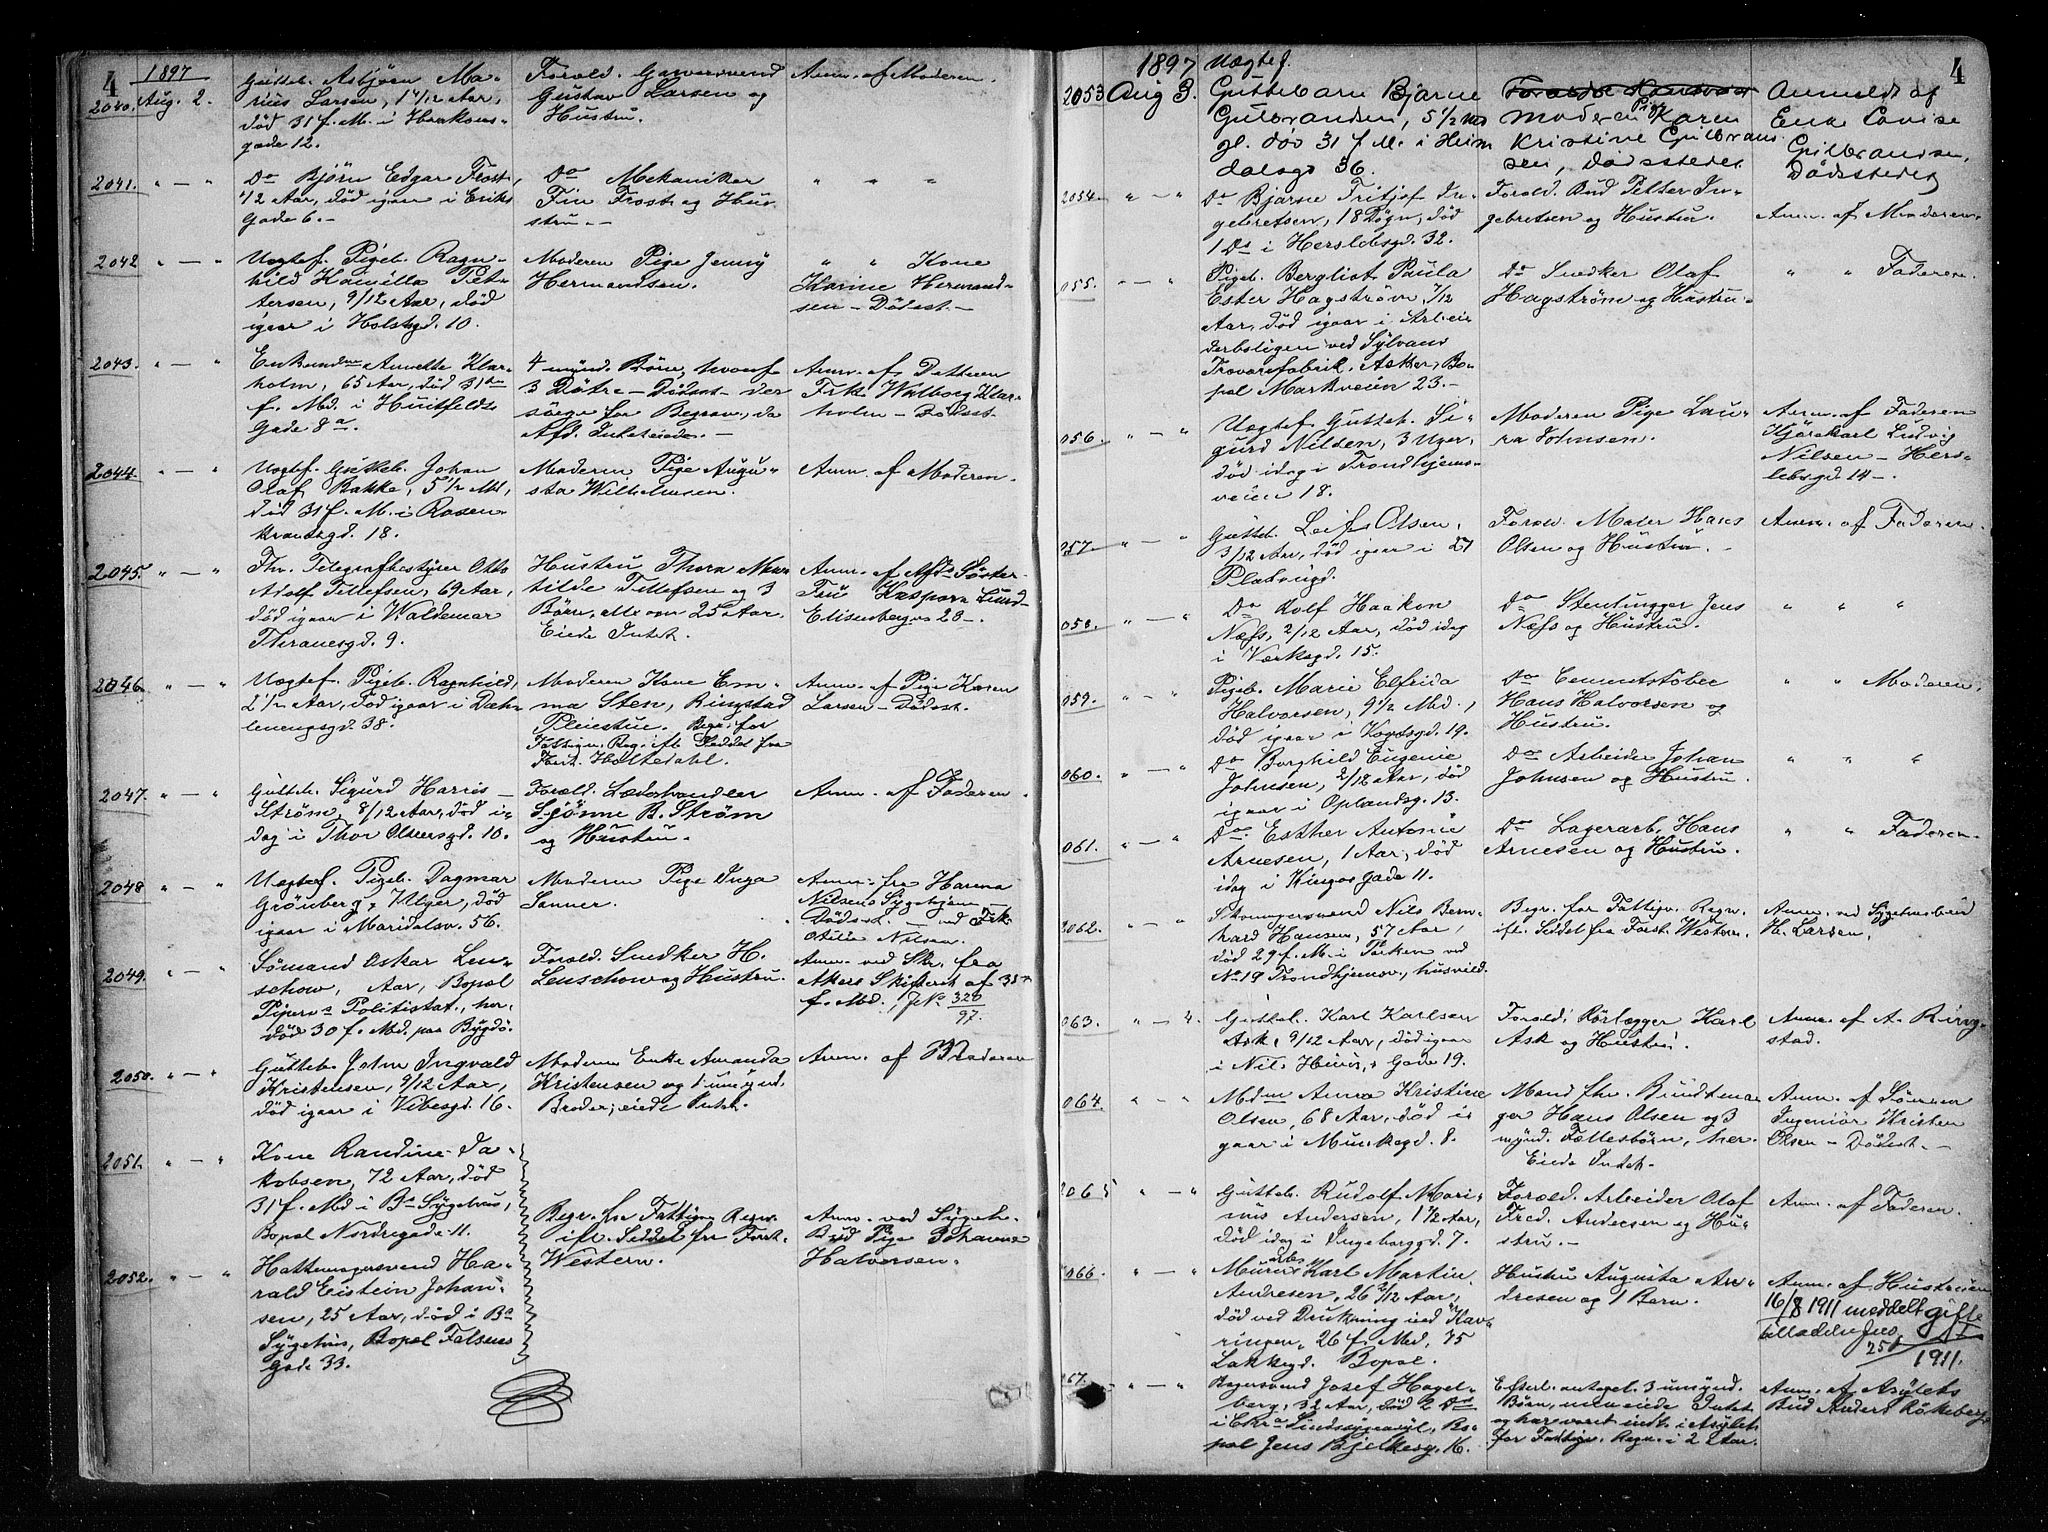 4
1897
2040. Aug. 2.
Gutteb. Asbjørn Ma-
rius Larsen, 1 4/12 Aar,
død 31 f. M. i Haakons-
gade 12.
Foræld.
Gustav Larsen og
Hustru.
Anm. af Moderen.
2041. " — "
Do Bjørn Edgar Frost,
1/2 Aar, død igaar i Eriks
Gade 6. -
Do Mekaniker
Fin Frost og Hus-
stru. -
" " "
2042 " — "
Uægtef. Pigeb. Ragn-
hild Kamilla Pet-
tersen, 9/12 Aar, død
igaar i Holstsgd. 10.
Moderen Pige Jenny
Hermandsen.
" " Kone
Karine Hermand-
sen - Dødsst. -
2043. " — "
Enkemdm Annette Klar-
holm, 65 Aar, død 31te
f. Md. i Huitfeldts
Gade 8a.
4 mynd. Børn, hvoraf
3 Døtre - Dødsst. - der
sørge for Begrav., da
Afd. Intet eiede. -
Anm. af Datteren
Frk. Walborg Klar-
holm - Dødsst.
2044. " — "
Uægtef. Gutteb. Johan
Olaf Bakke, 5 1/2 Md.,
død 31 f. M. i Rosen-
krantsgd. 18.
Moderen Pige Augu-
sta Wilhelmsen.
Anm. af Moderen.
2045. " — "
Fhv. Telegrafbestyrer Otto
Adolf Tellefsen, 69 Aar,
død igaar i Waldemar
Thranesgd. 9.
Hustru Thora Mat-
tilde Tellefsen og 3
Børn, alle over 25 Aar.
Eiede Intet.
Anm. af Afds Søster
Fru Kaspara Lund -
Elisenbergv. 28 -.
2046. " — "
Uægtef. Pigeb. Ragnhild,
2 1/2 Aar, død igaar i Dæh-
lenengsgd. 38.
Moderen Kone Em-
ma Sten, Ringstad
Pleiestue. Begr. for
Fattigv. Reg. ifl. Seddel fra
Forst. Holtedahl.
Anm. af Pige Karen
Larsen - Dødsst.
2047. " — "
Gutteb. Sigurd Harris -
Strøm, 8/12 Aar, død i-
dag i Thor Olsensgd. 10.
Foræld. Læderhandler
Sjønne B. Strøm
og Hustru.
Anm. af Faderen.
2048 " — "
Uægtef. Pigeb. Dagmar
Grønberg, Uger, død
igaar i Maridalsv. 56.
Moderen Pige Inga
Sanner.
Anm. fra Harena
Nilsens Sygehjem -
Dødsst. - ved Frk.
Otilie Nilsen.
2049. " — "
Sømand Oskar Len-
schow, Aar, Bopæl
Pipervs Politistat., her-
død 30 f. Md. paa Bygdø.
Foræld. Snedker H.
Lenschow og Hustru.
Anm. ved Skr. fra
Akers Skifteret af 31te
f. Md., J No 326
97.
2050. " — "
Gutteb. John Ingvald
Kristensen, 9/12 Aar,
død igaar i Vibesgd. 16.
Moderen Enke Amanda
Kristensen og 1 umynd.
Broder; eiede Intet.
Anm. af Moderen
2051. " — "
Kone Randine Ja-
kobsen, 72 Aar, død
31 f. Md i Bs Sygehus,
Bopæl Nordregade 11.
Begr. for Fattigv. Regn.
ifl. Seddel fra Forst.
Western.
Anm. ved Sygeh.
Bud Pige Johanne
Halvorsen.
2052. " — "
Hattemagersvend Ha-
rald Eistein Johan-
sen, 25 Aar, død i Bs
Sygehus, Bopæl Falsens
Gade 33.
4
1897
2053 Aug 3.
Uægtef.
Guttebarn Bjarne
Gulbrandsen, 5 1/2 Md
gl. død 31 f M. i Heim
dalsgd 36.
Moderen Pige Karen
Kristine Gulbrand
sen, Dødsstedet
Anmeldt af
Enke Lovise
Gulbrandsen,
Dødsstedet
2054. " — "
Do Bjarne Fritjof In-
gebretsen, 18 Døgn, død
1 Ds i Herslebsgd. 32.
Foræld. Bud Petter In-
gebretsen og Hustru.
Anm. af Moderen.
055. " — "
Pigeb. Bergliot Paula
Ester Hagstrøm, 7/12
Aar, død igaar i Arbei-
derboligen ved Sylvans
Trævarefabrik, Asker, Bo-
pæl Markveien 23. -
Do Snedker Olaf
Hagstrøm og Hustru.
" " Faderen.
056. " — "
Uægtef. Gutteb. Si-
gurd Nilsen, 3 Uger,
død idag i Trondhjems-
veien 18.
Moderen Pige Lau-
ra Johnsen.
Anm. af Faderen
Kjørekarl Ludvig
Nilsen - Hers-
lebsgd. 14 -.
057. " — "
Gutteb. Leif Olsen,
3/12 Aar, død igaar i 27
Platousgd.
Foræld. Maler Hans
Olsen og Hustru. -
Anm. af Faderen.
058. " — "
Do Rolf Haakon
Næss, 2/12 Aar, død idag
i Værksgd. 15.
Do Stenhugger Jens
Næss og Hustru.
" " "
059. " — "
Pigeb. Marie Elfrida
Halvorsen, 9 1/2 Md.,
død igaar i Vogtsgd. 19.
Do Cementstøber
Hans Halvorsen og
Hustru.
" " Moderen.
060. " — "
Do Borghild Eugenie
Johnsen, 2/12 Aar, død
igaar i Oplandsg. 13.
Do Arbeider Johan
Johnsen og Hustru.
" " "
061. " — "
Do Esther Antonie
Arnesen, 1 Aar, død
idag i Kingos Gade 11.
Do Lagerarb. Hans
Arnesen og Hustru.
" " Faderen.
2062. " — "
Skomagersvend Nils Bern-
hard Hansen, 57 Aar,
død 29 f. M. i Parken ved
No 19 Trondhjemsv., husvild.
Begr. for Fattigv. Regn.
ifl. Seddel fra Forst. Western.
Anm. ved Sygehusbud
H. Larsen.
063. " — 4.
Gutteb. Karl Karlsen
Ask, 9/12 Aar, død igaar
i Nils Huus's Gade 19.
Foræld. Rørlægger Karl
Ask og Hustru.
Anm. af A. Ring-
stad.
064. " — "
Mdm Anna Kristine
Olsen, 68 Aar, død i-
gaar i Munkegd. 8.
Mand fhv. Bundtma-
ger Hans Olsen og 3
mynd. Fællesbørn, her.
Eiede Intet.
Anm. af Sønnen
Ingeniør Kristen
Olsen - Dødsst. -
2065 " — "
Gutteb. Rudolf Mari-
nus Andersen, 1 1/2 Aar,
død idag i Ingeborggd. 7.
Foræld. Arbeider Olaf
Fred. Andersen og Hu-
stru. -
Anm. af Faderen.
066. " — "
Murerarb. Karl Martin
Andresen, 26 2/12 Aar,
død ved Drukning ved Kav-
ringen, 26 f. Md., 75
Lakkegd. Bopæl.
Hustru Augusta An-
dresen og 1 Barn.
Anm. af Hustruen
16/8 1911 meddelt gifte
tilladelse Jno
251
1911.
067. " — "
Bagersvend Josef Hagel-
berg, 32 Aar, død 2 Ds
i Chra Sindssygeasyl, Bo-
pæl Jens Bjelkesg. 16.
Efterl. antagel. 3 umynd.
Børn, men eiede Intet
og har været indl. i Asylet
for Fattigv. Regn. i 2 Aar.
Anm. af Asylets
Bud Anders Røkeberg.